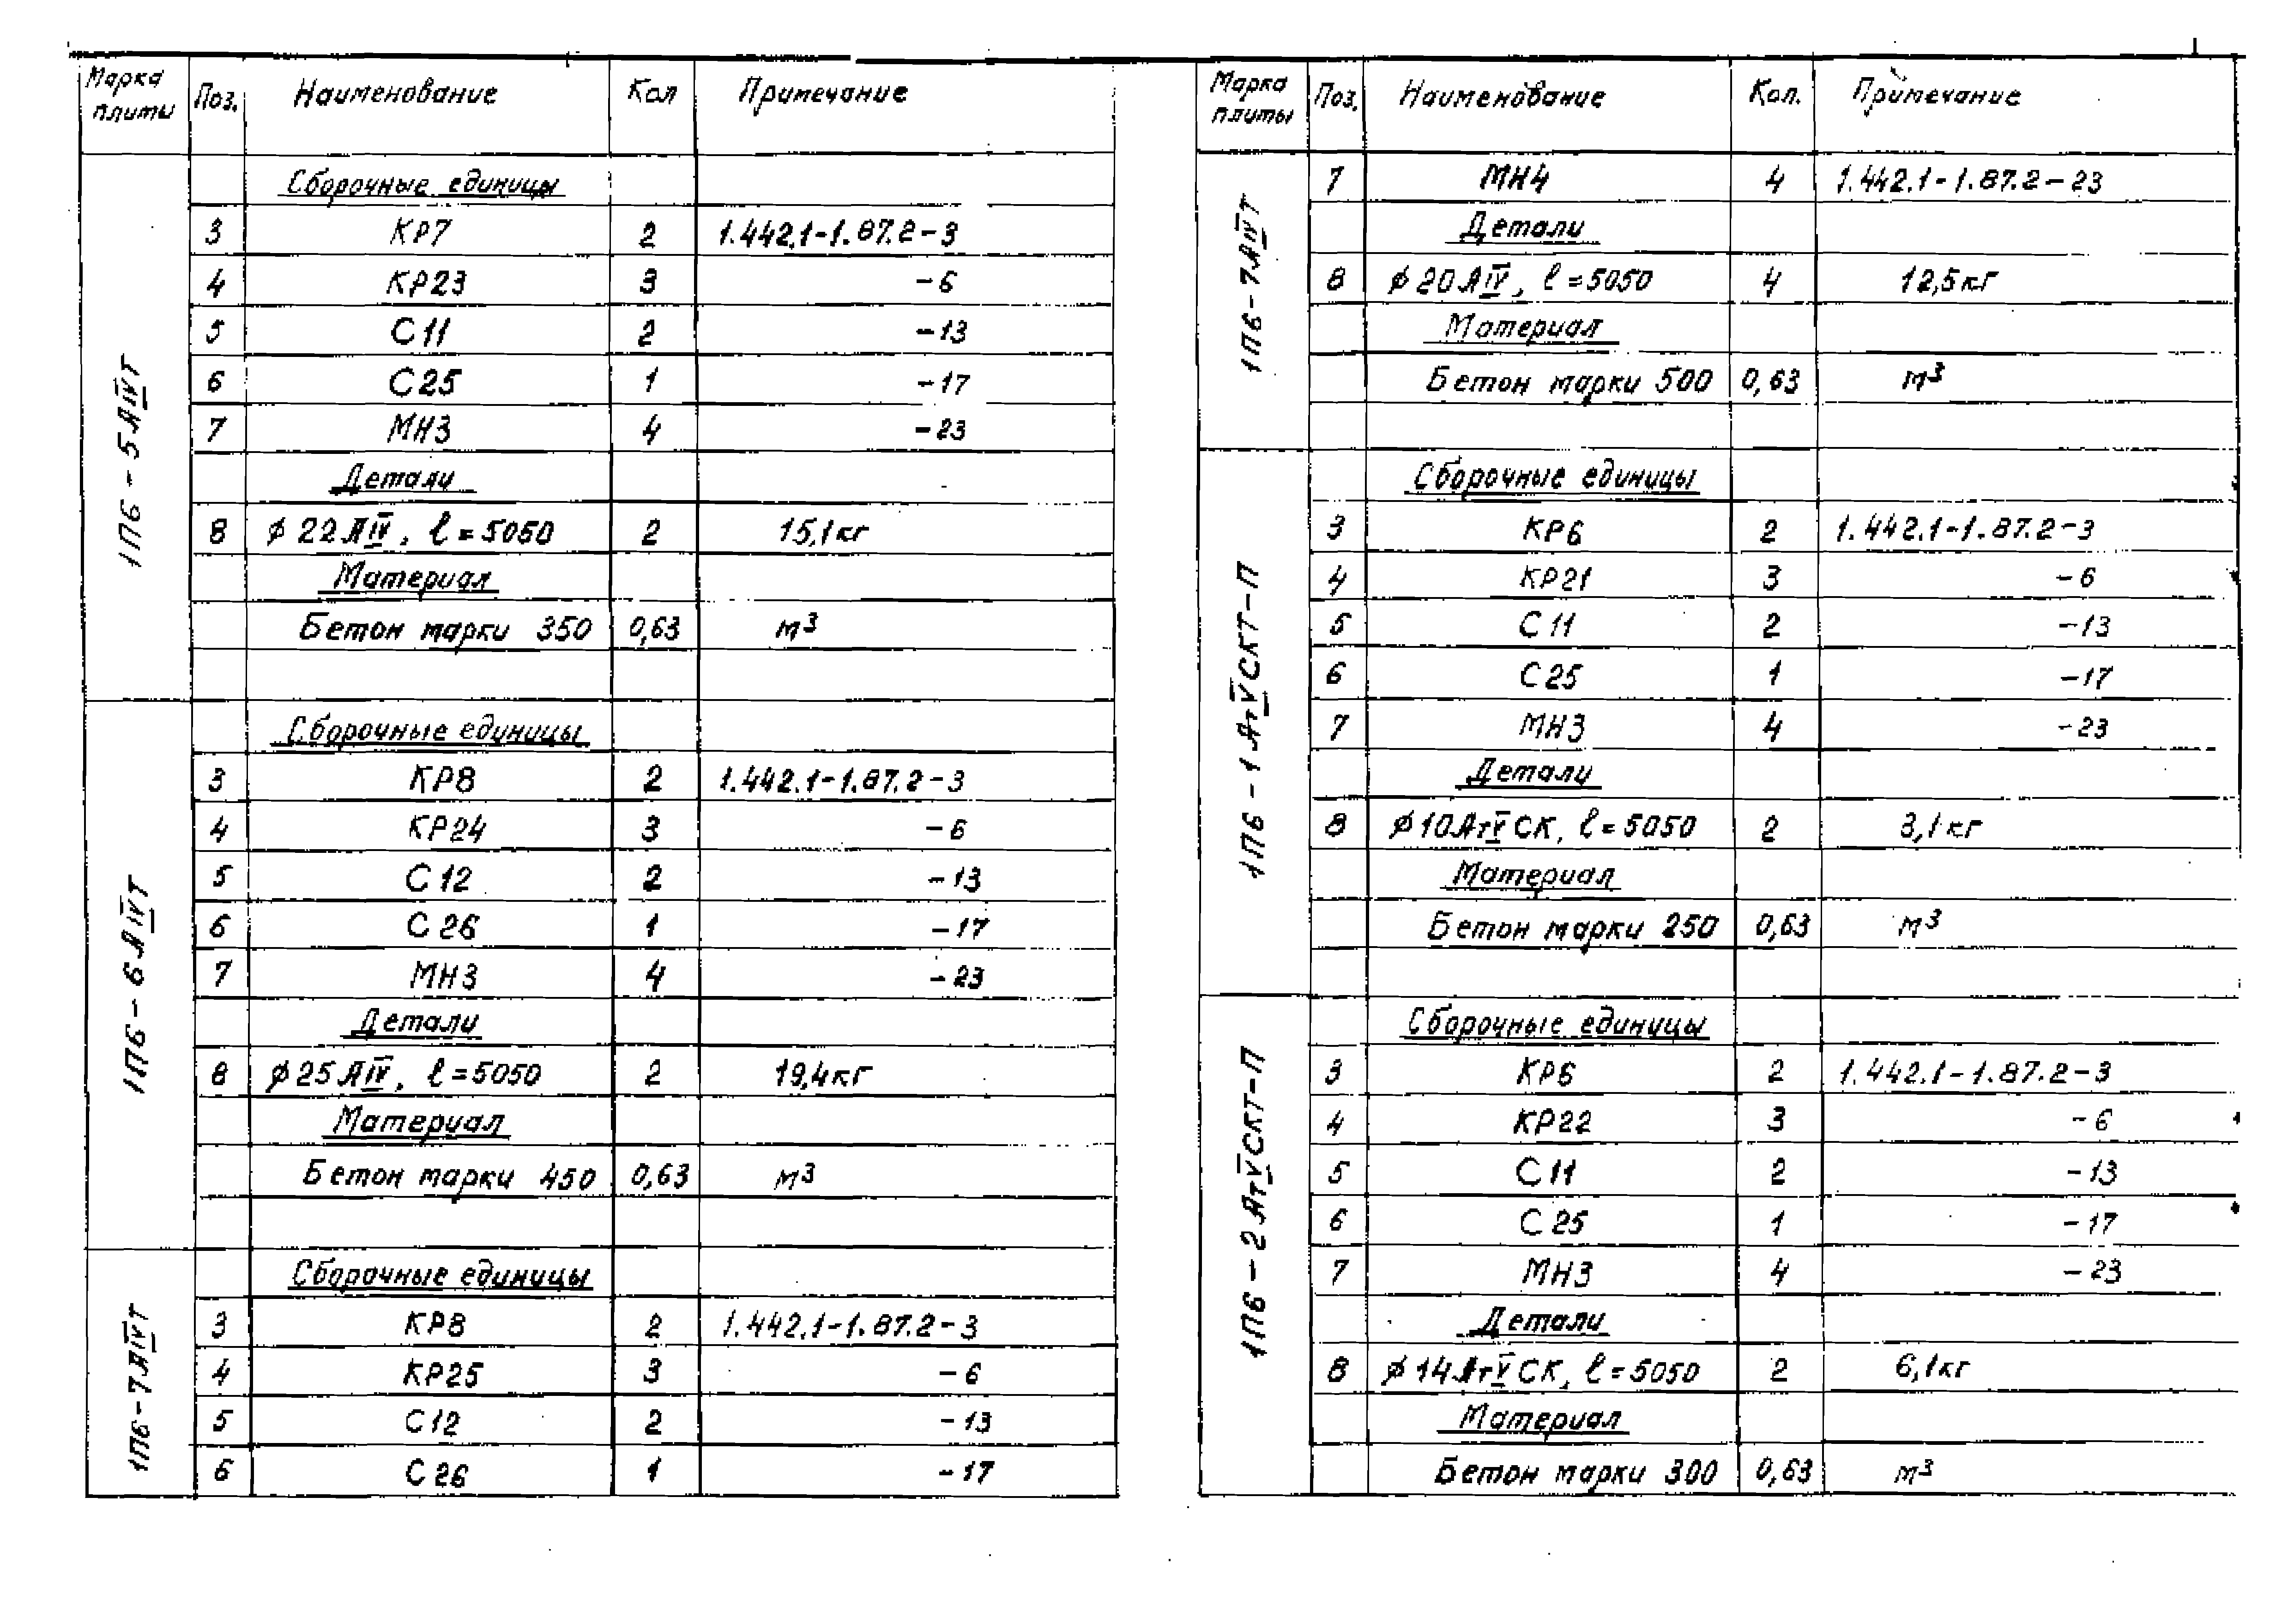 Марка плиты Поз. Наименование Кол Примечание
1П6-5АIVТ
Сборочные единицы
3 КР7 2 1.442.1-1.87.2-3
4 КР23 3 -6
5 С11 2 -13
6 С25 1 -17
7 МН3 4 -23
Детали
8 ϕ22АIV, ℓ=5050 2 15,1кг
Материал
Бетон марки 350 0,63 м³
1П6-6АIVТ
Сборочные единицы
3 КР8 2 1.442.1-1.87.2-3
4 КР24 3 -6
5 С12 2 -13
6 С26 1 -17
7 МН3 4 -23
Детали
8 ϕ25АIV, ℓ=5050 2 19,4кг
Материал
Бетон марки 450 0,63 м³
1П6-7АIVТ
Сборочные единицы
3 КР8 2 1.442.1-1.87.2-3
4 КР25 3 -6
5 С12 2 -13
6 С26 1 -17
Марка плиты Поз. Наименование Кол. Примечание
1П6-7АIVТ
7 МН4 4 1.442.1-1.87.2-23
Детали
8 ϕ20АIV, ℓ=5050 4 12,5кг
Материал
Бетон марки 500 0,63 м³
1П6-1АтVСКТ-П
Сборочные единицы
3 КР6 2 1.442.1-1.87.2-3
4 КР21 3 -6
5 С11 2 -13
6 С25 1 -17
7 МН3 4 -23
Детали
8 ϕ10АтVСК, ℓ=5050 2 3,1кг
Материал
Бетон марки 250 0,63 м³
1П6-2АтVСКТ-П
Сборочные единицы
3 КР6 2 1.442.1-1.87.2-3
4 КР22 3 -6
5 С11 2 -13
6 С25 1 -17
7 МН3 4 -23
Детали
8 ϕ14АтVСК, ℓ=5050 2 6,1кг
Материал
Бетон марки 300 0,63 м³